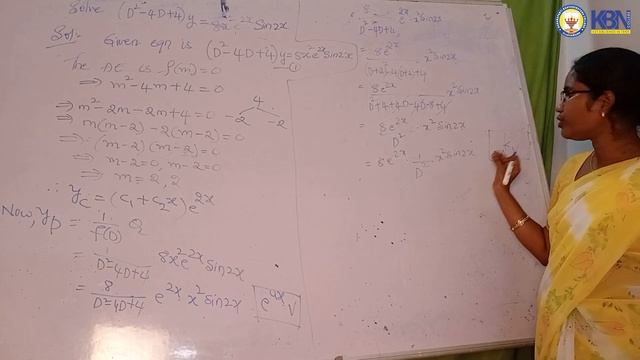 Solve (D²-4D+4)y = 8x²e²ˣ Sin2x
Sol:- Given eqn is (D²-4D+4)y = 8x²e²ˣ Sin2x
①
The AE is f(m) = 0
⇒ m²-4m+4 = 0
⇒ m²-2m-2m+4 = 0
4
-2 -2
⇒ m(m-2)-2(m-2) = 0
⇒ (m-2)(m-2) = 0
⇒ m-2=0, m-2=0
⇒ m = 2, 2
∴ y_c = (c₁+c₂x)e²ˣ
Now, y_p = 1/f(D) Q
= 1/D²-4D+4 8x²e²ˣ Sin2x
= 8/D²-4D+4 e²ˣ x² Sin2x e^ax V
8/D²-4D+4 e²ˣ x² Sin2x
= 8e²ˣ /(D+2)²-4(D+2)+4 x² Sin2x
= 8e²ˣ /D²+4+4D-4D-8+4 x² Sin2x
= 8e²ˣ /D² · x² Sin2x
= 8e²ˣ · 1/D · x² Sin2x
KBN